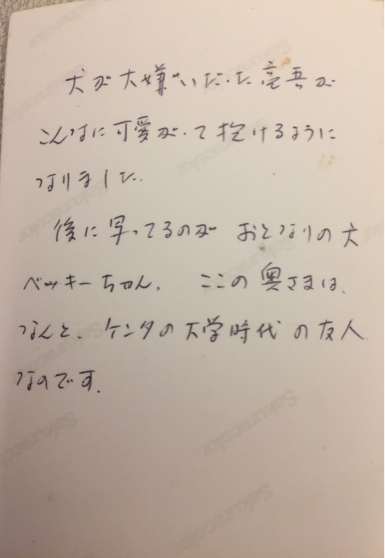 犬が大嫌いだった亮吾が
こんなに可愛がって抱けるように
なりました。
後に写ってるのが おとなりの犬
ベッキーちゃん。 ここの奥さまは、
なんと、ケンタの大学時代の友人
なのです。
Sakuracolor
Sakuracolor
Sakuracolor